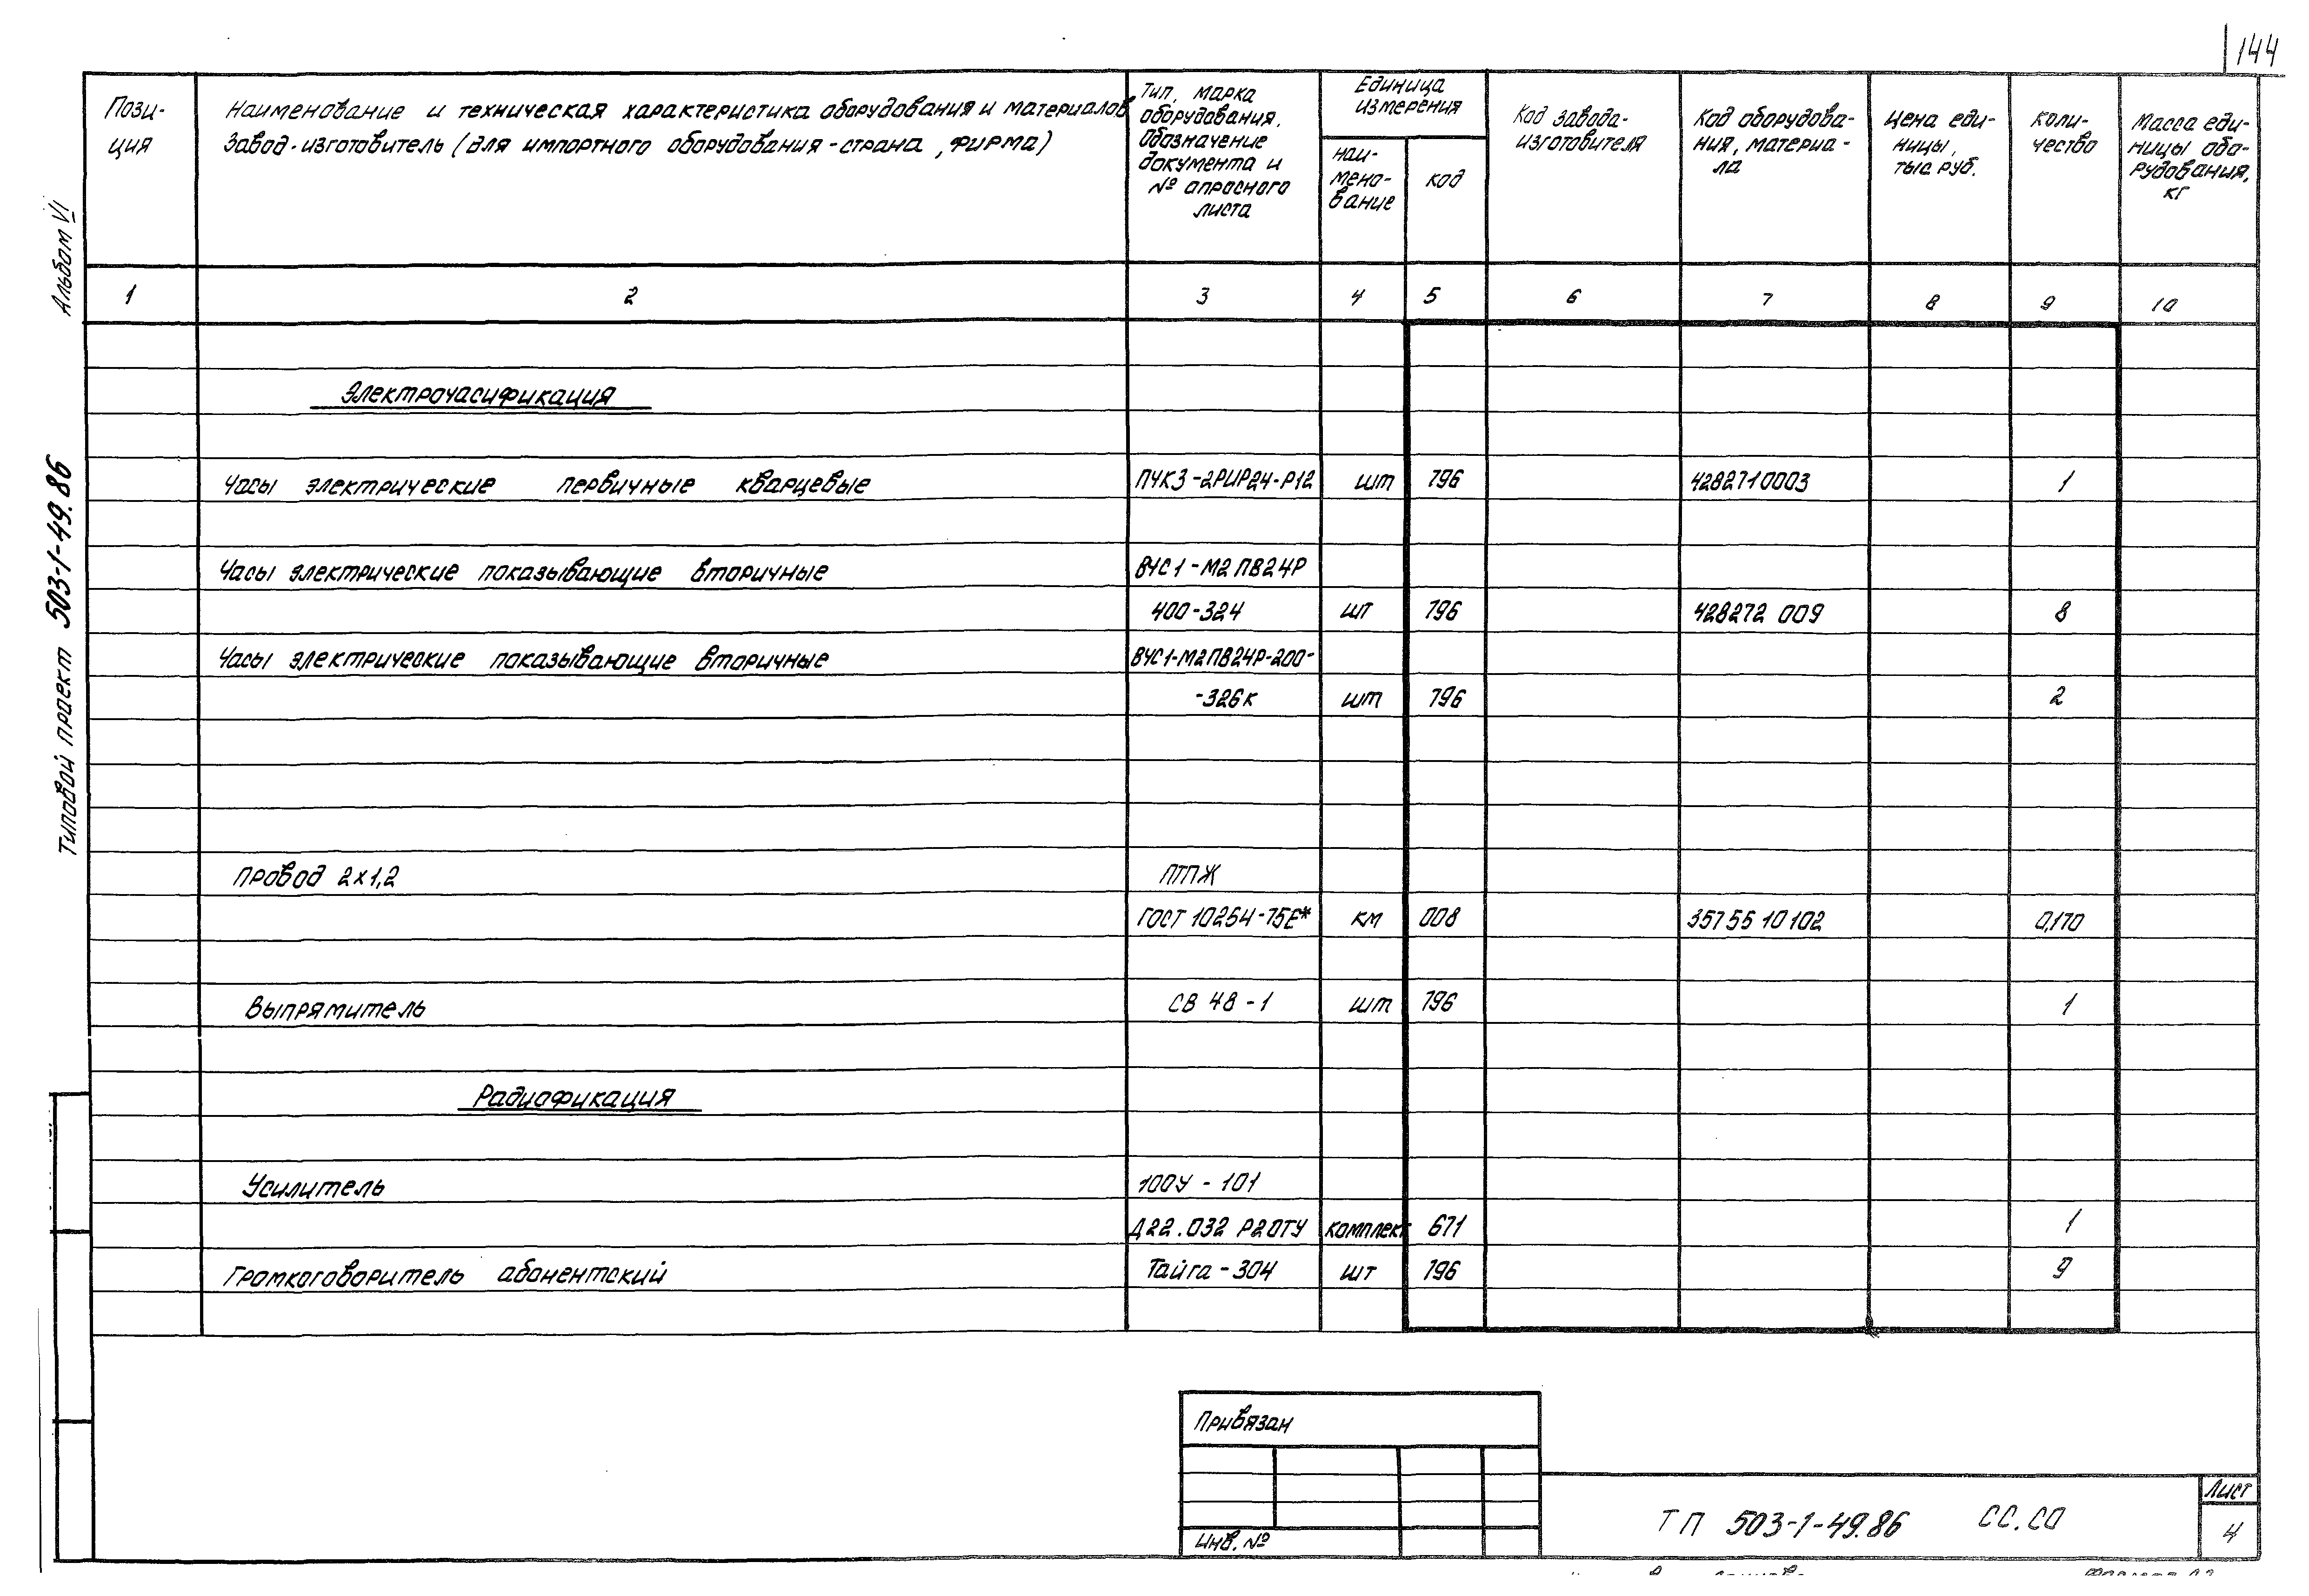 144
Пози-
ция
Наименование и техническая характеристика оборудования и материалов
Завод-изготовитель (для импортного оборудования-страна, фирма)
Тип, марка
оборудования.
Обозначение
документа и
№ опросного
листа
Единица
измерения
наи-
мено-
вание
код
Код завода-
изготовителя
Код оборудова-
ния, материа-
ла
Цена еди-
ницы,
тыс. руб.
Коли-
чество
Масса еди-
ницы обо-
рудования,
кг
1 2 3 4 5 6 7 8 9 10
Электрочасификация
Часы электрические первичные кварцевые ПЧК3-2РИР24-Р12 шт 796 4282710003 1
Часы электрические показывающие вторичные ВЧС1-М2ПВ24Р
400-324 шт 796 428272 009 8
Часы электрические показывающие вторичные ВЧС1-М2ПВ24Р-200-
-326к шт 796 2
Провод 2х1,2 ПТПЖ
ГОСТ 10254-75Е* км 008 35755 10102 0,170
Выпрямитель СВ 48-1 шт 796 1
Радиофикация
Усилитель 100У-101
Д22.032 Р20ТУ комплект 671 1
Громкоговоритель абонентский Тайга-304 шт 796 9
Альбом VI
Типовой проект 503-1-49.86
Привязан
Инв. №
ТП 503-1-49.86 СС.СО
Лист
4